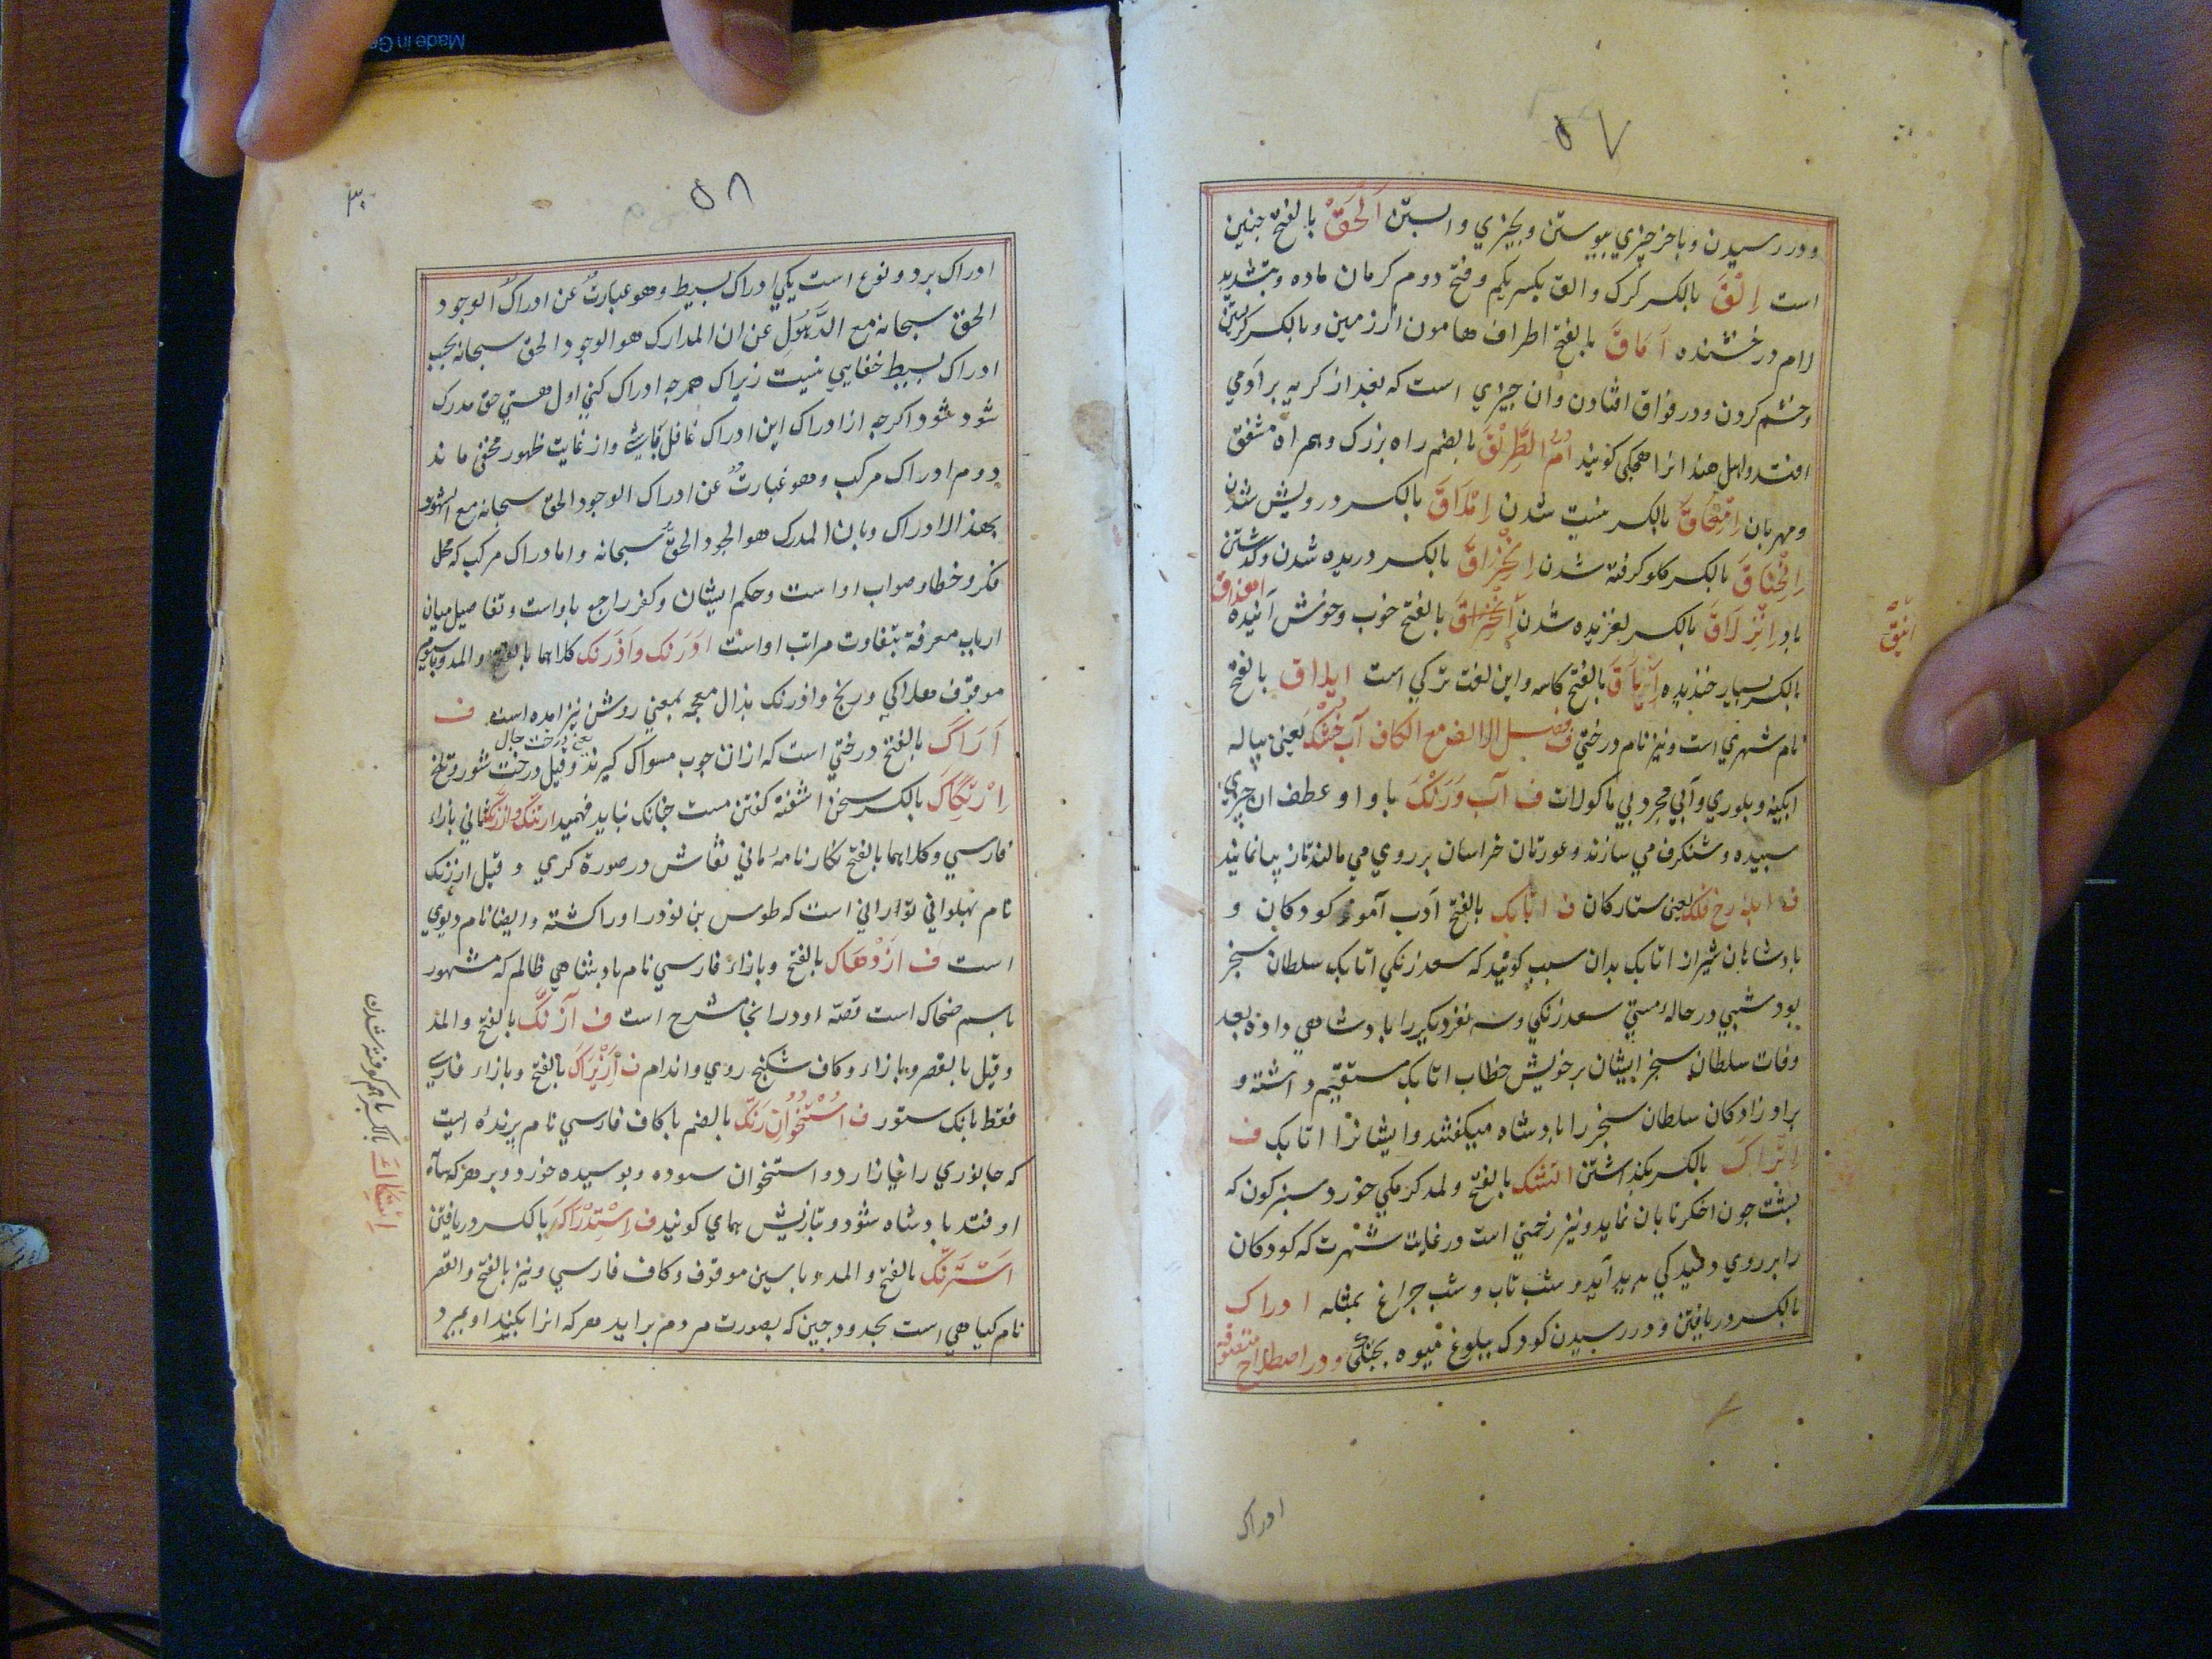 ۵۷
ودررسیدن وباخر چیزي پیوستن وبچیزي وابستن اَلْحَقْ بالفتح چنین
است اِلْقَ بالکسر کرک والق بکسر یکم وفتح دوم کرمان ماده وبتشدید
لام درخشنده آمَاقَ بالفتح اطراف هامون از زمین وبالکسر کریستن
وخشم کردن ودر فواق افتادن وان چیزي است که بعد از کریه بر آدمي
افتد واهل هند انرا هچکي کویند اُمُّ الطَّرِیْقَ بالضم راه بزرک وهمراه مشفق
ومهربان اِمِّحَاقَ بالکسر نیست شدن اِمْلَاقَ بالکسر درویش شدن
اِنْخِنَاقَ بالکسر کلو کرفته شدن اِنْخِرَاقَ بالکسر دریده شدن وکذشتن
باد اِنْزِلَاقَ بالکسر لغزیده شدن بالفتح خوب وخوش آینده
انغداق
اَنِیْقْ
بالکسر بسیار خندیده اَیَاقَ بالفتح کاسه واین لغت ترکي است ایلاق بالفتح
نام شهري است ونیز نام درختي ف فصل الالف مع الکاف آب خُشْکْ یعني پیاله
ابکینه وبلوري وآبي مجرد بي ماکولات ف آب وَرَنْکَ باواو عطف ان چیزي
سپیده وشنکرف مي سازند وعورتان خراسان بر روي مي مالند تا زیبا نمایند
ف ابله رخ فلک یعني ستارکان ف اتابک بالفتح اَدب آموز کودکان و
پادشاهان شیراز اتابک بدان سبب کویند که سعد زنکي اتابک سلطان سنجر
بود شبي در حالهٔ مستي سعد زنکي وسه نفر دیکر را پادشاهي داده بعد
وفات سلطان سنجر ایشان بر خویش خطاب اتابک مستقیم داشته و
برادر زادکان سلطان سنجر را پادشاه میکفتند وایشانرا اتابک ف
اِتْرَاکَ بالکسر بکذاشتن اتشک بالفتح والمد کرمکي خورد سبز کون که
بشب چون اخکر تابان نماید ونیز زحمتي است در غایت شهرت که کودکان
را بر روي دمیدکي پدید آید و شب تاب و شب چراغ بمثله ادراک
بالکسر دریافتن ودررسیدن کودک ببلوغ ومیوه بپختکي ودر اصطلاح متصوفه
ادراک
۵۸
۳۰
ادراک بر دو نوع است یکي ادراک بسیط وهو عبارتٌ عن ادراک الوجود
الحق سبحانه مع الذُّهُولِ عن ان المدارک هو الوجود الحق سبحانه بحسب
ادراک بسیط خفایي نیست زیراک هرچه ادراک کني اول هستي حق مدرک
شود شود اکرچه از ادراک این ادراک غافل باشي واز غایت ظهور مخفي ماند
دوم ادراک مرکب وهو عبارتٌ عن ادراک الوجود الحق سبحانه مع الشهود
بهذا الادراک وبان المدرک هو الوجود الحقُّ سبحانه واما ادراک مرکب که محل
فکر وخطا وصواب او است وحکم ایشان وکفر راجع باو است وتفاصیل میان
ارباب معرفة بتفاوت مراتب او است اَدَرَنک واَذَرَنک کلاهما بالفتح والمد وباسیوم
موقوف هلاکي ورنج واذرنک بذال معجمه بمعني روشن نیز امده است ف
اَرَاکَ بالفتح درختي است که ازان چوب مسواک کیرند وقیل درخت شور وتلخ
یعني درخت جال
اِرْتِکَاکَ بالکسر سخن اشفته کفتن مست چنانک نباید فهمید ارتنک وارژنک ثاني بازاء
فارسي وکلاهما بالفتح نکار نامهٔ ماني نقاش در صورة کري وقیل ارژنک
نام پهلواني توراني است که طوس بن نوذر اورا کشته وایضا نام دیوي
است ف اَژدهاک بالفتح وبازاء فارسي نام پادشاهي ظالم که مشهور
باسم ضحاک است قصّه او درانجا مشرح است ف آژَنگ بالفتح والمد
وقیل بالقصر وبازاء وکاف شکنج روي واندام ف بالفتح وبازاء فارسي
فقط بانک ستور ف اُسْتُخوان رَنْکَ بالضم با کاف فارسي نام پرندهٔ ایست
که جانوري را نیازارد واستخوان سوده وبوسیده خورد وبر هر که سایه
او فتد پادشاه شود وبتازیش هماي کویند ف اِسْتِدْرَاکَ بالکسر دریافتن
اَسْتَرَنْکَ بالفتح والمد وباسین موقوف وکاف فارسي ونیز بالفتح والقصر
نام کیاهي است بحدود چین که بصورت مردم براید هر که انرا بکند او بمیرد
اِشتِکَاکَ بالکسر باهم کوفته شدن